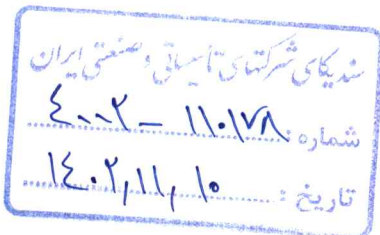 سندیکای شرکتهای تأسیساتی و صنعتی ایران
شماره: ۴۰۰۲ - ۱۱۰۱۷۸
تاریخ: ۱۴۰۲,۱۱,۱۰